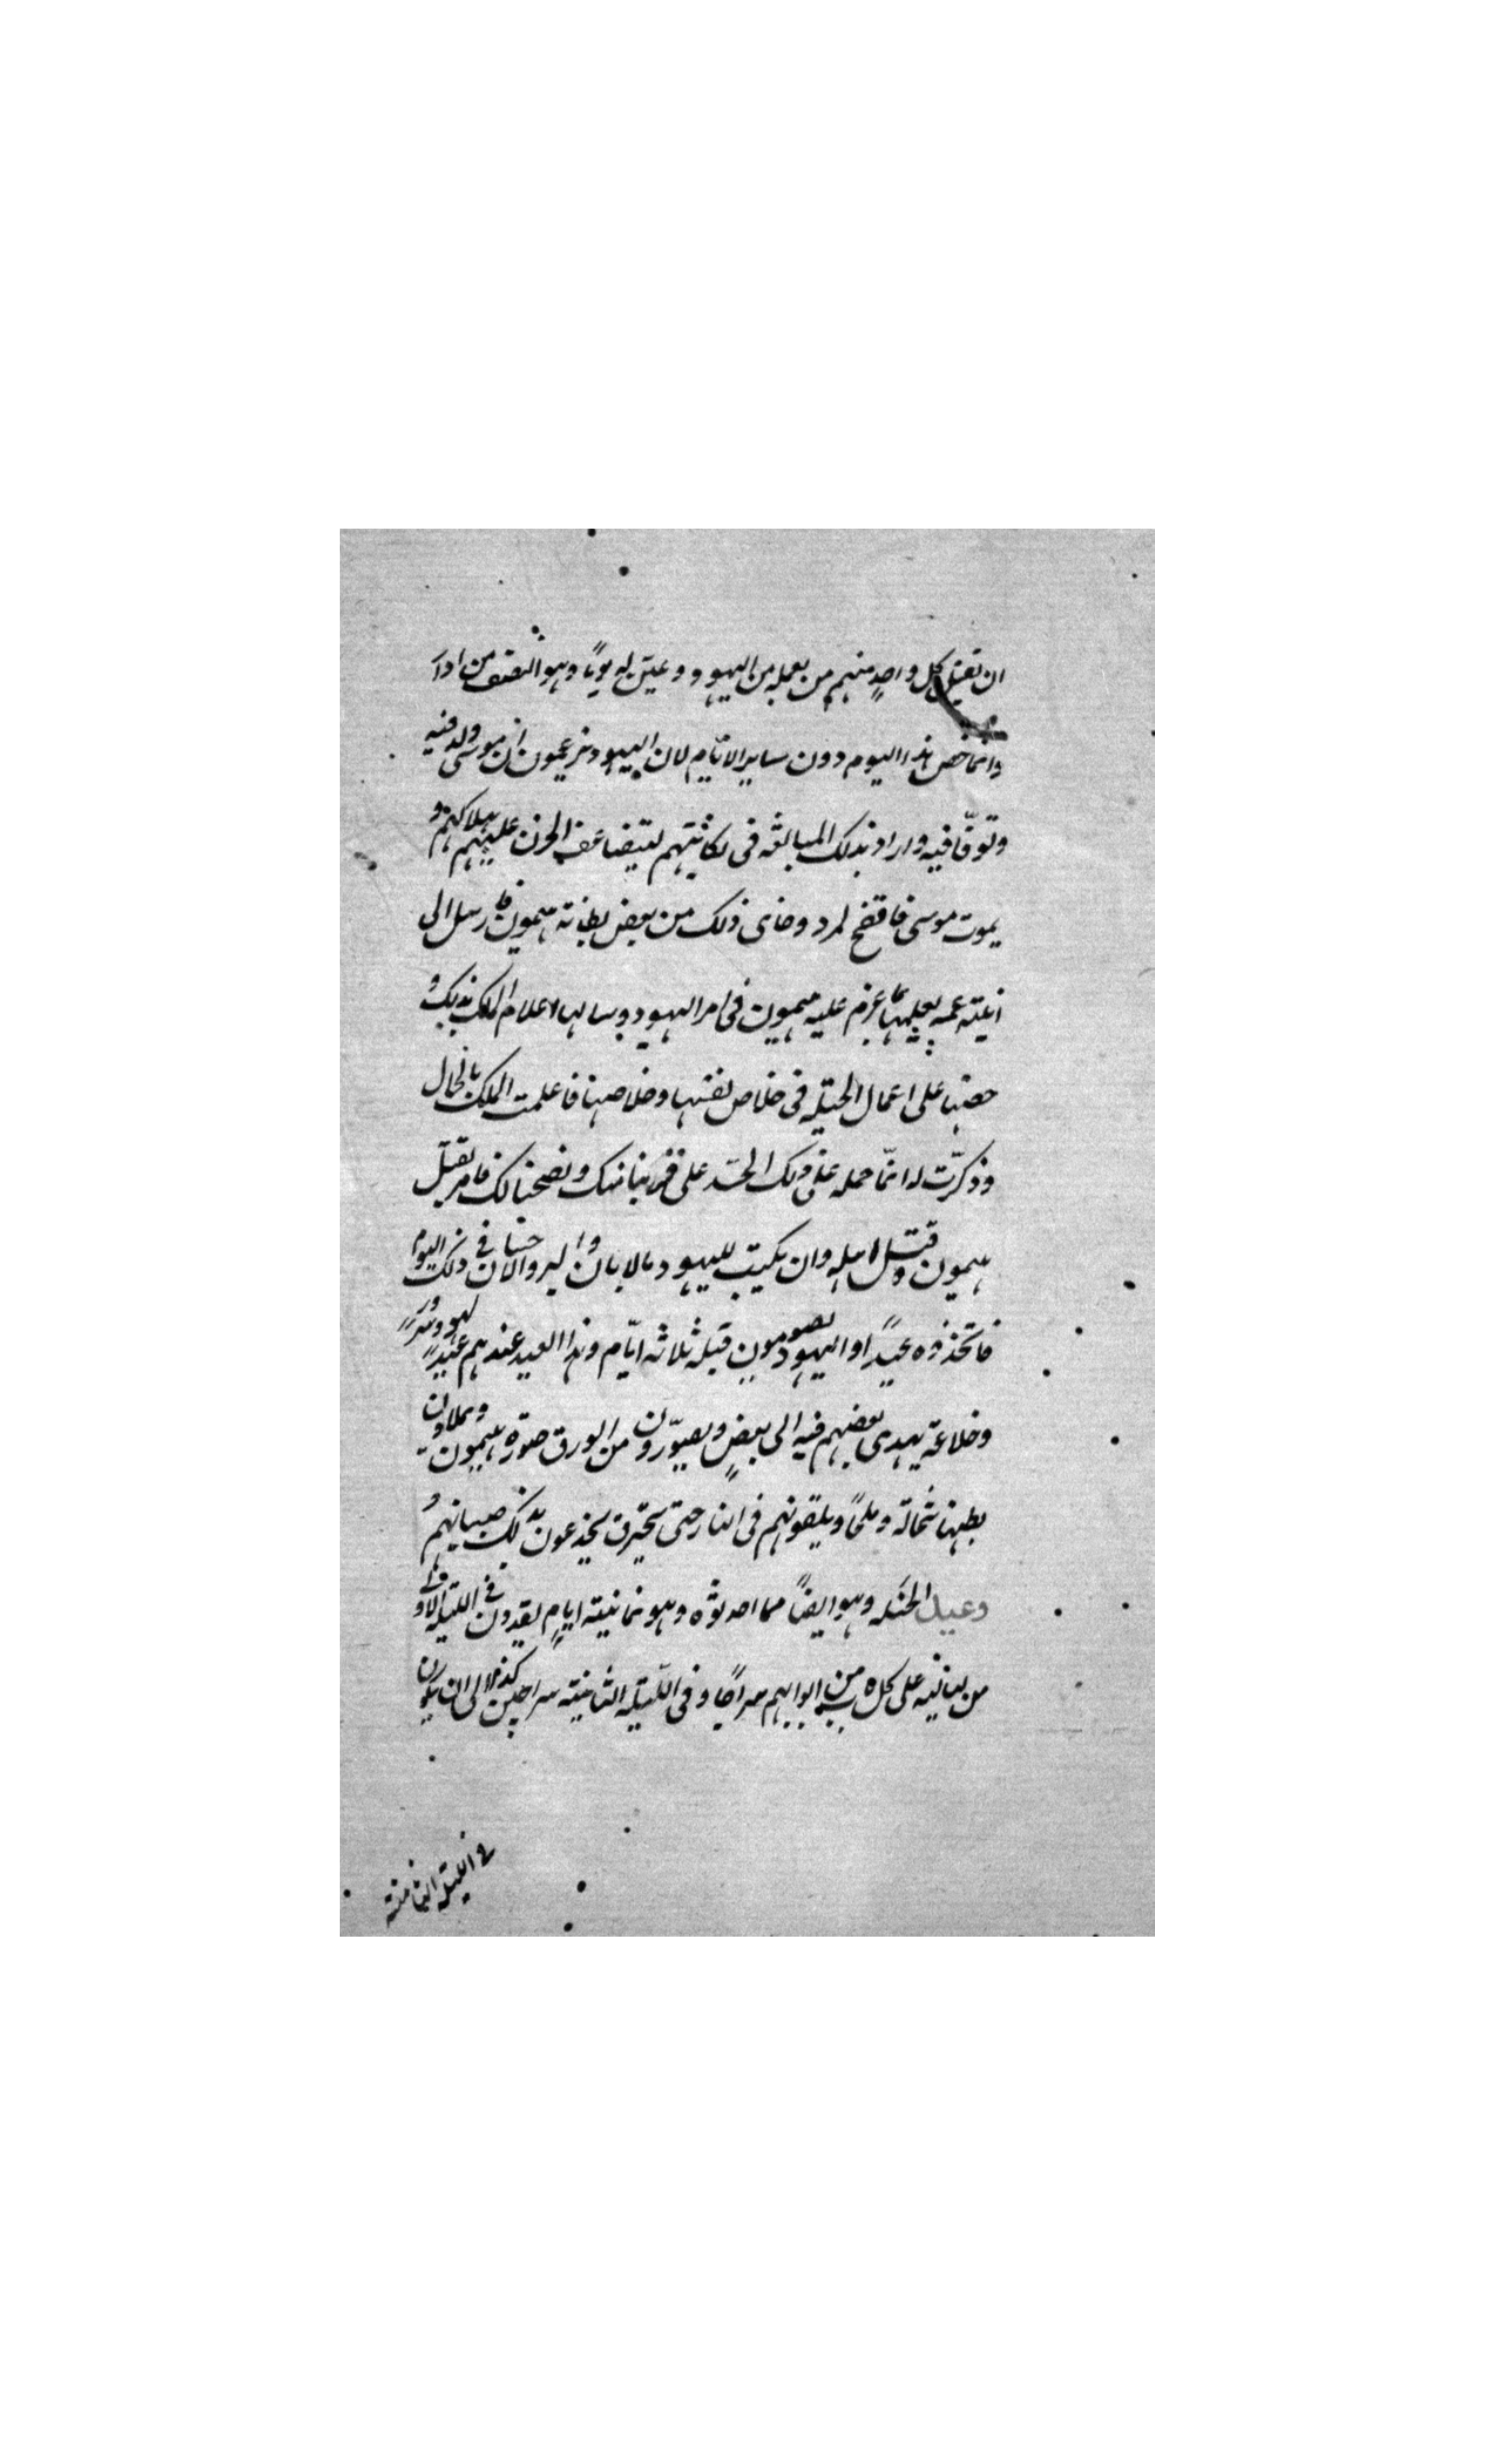 ان تقتيل كل واحدٍ منهم من بعمله من اليهود وعيّن له يومًا وهو النصف من اداَ
وانما خص هذا اليوم دون ساير الايّام لان اليهود يزعمون ان موسى ولد فيه
وتوفّا فيه واراد بذلك المبالغه فى نكايتهم ليتضاعف الحزن عليهم بهلاكهم و
يموت موسى فاتضح لمردوخاى ذلك من بعض بطانة هيمون فارسل الى
ابنته عمه يعلمها بما عزم عليه هيمون فى امر اليهود وسالها اعلام الملك بذلك و
حضها على اعمال الحيله فى خلاص نفسها وخلاصنا فاعلمت الملك بالحال
وذكرّت له انمّا حمله على ذلك الحسد على قربنا منك ونصحنا لك فامر بقتل
هيمون وقتل اهله وان يكتب لليهود بالامان والبر والاحسان فى ذلك اليوم
فاتخذوه عيدًا واليهود يصومون قبله ثلاثه ايّام وهذا العيد عندهم عيد لهو وسرور
وخلاعة يهدى بعضهم فيه الى بعضٍ ويصوّرون من الورق صورة هيمون ويملاون
بطنها نخالة وملحًا ويلقونهم فى النار حتى تحترق يخدعون بذلك صبيانهم و
وعيد الحنكه وهو ايضًا مما احدثوه وهو ثمانية ايامٍ يقدون فى الليلة الاولى
من لياليه على كل من ابوابهم سراجًا وفى الليله الثانيته سراجين كذا الى ان يكون
فى الليلة الثامنة